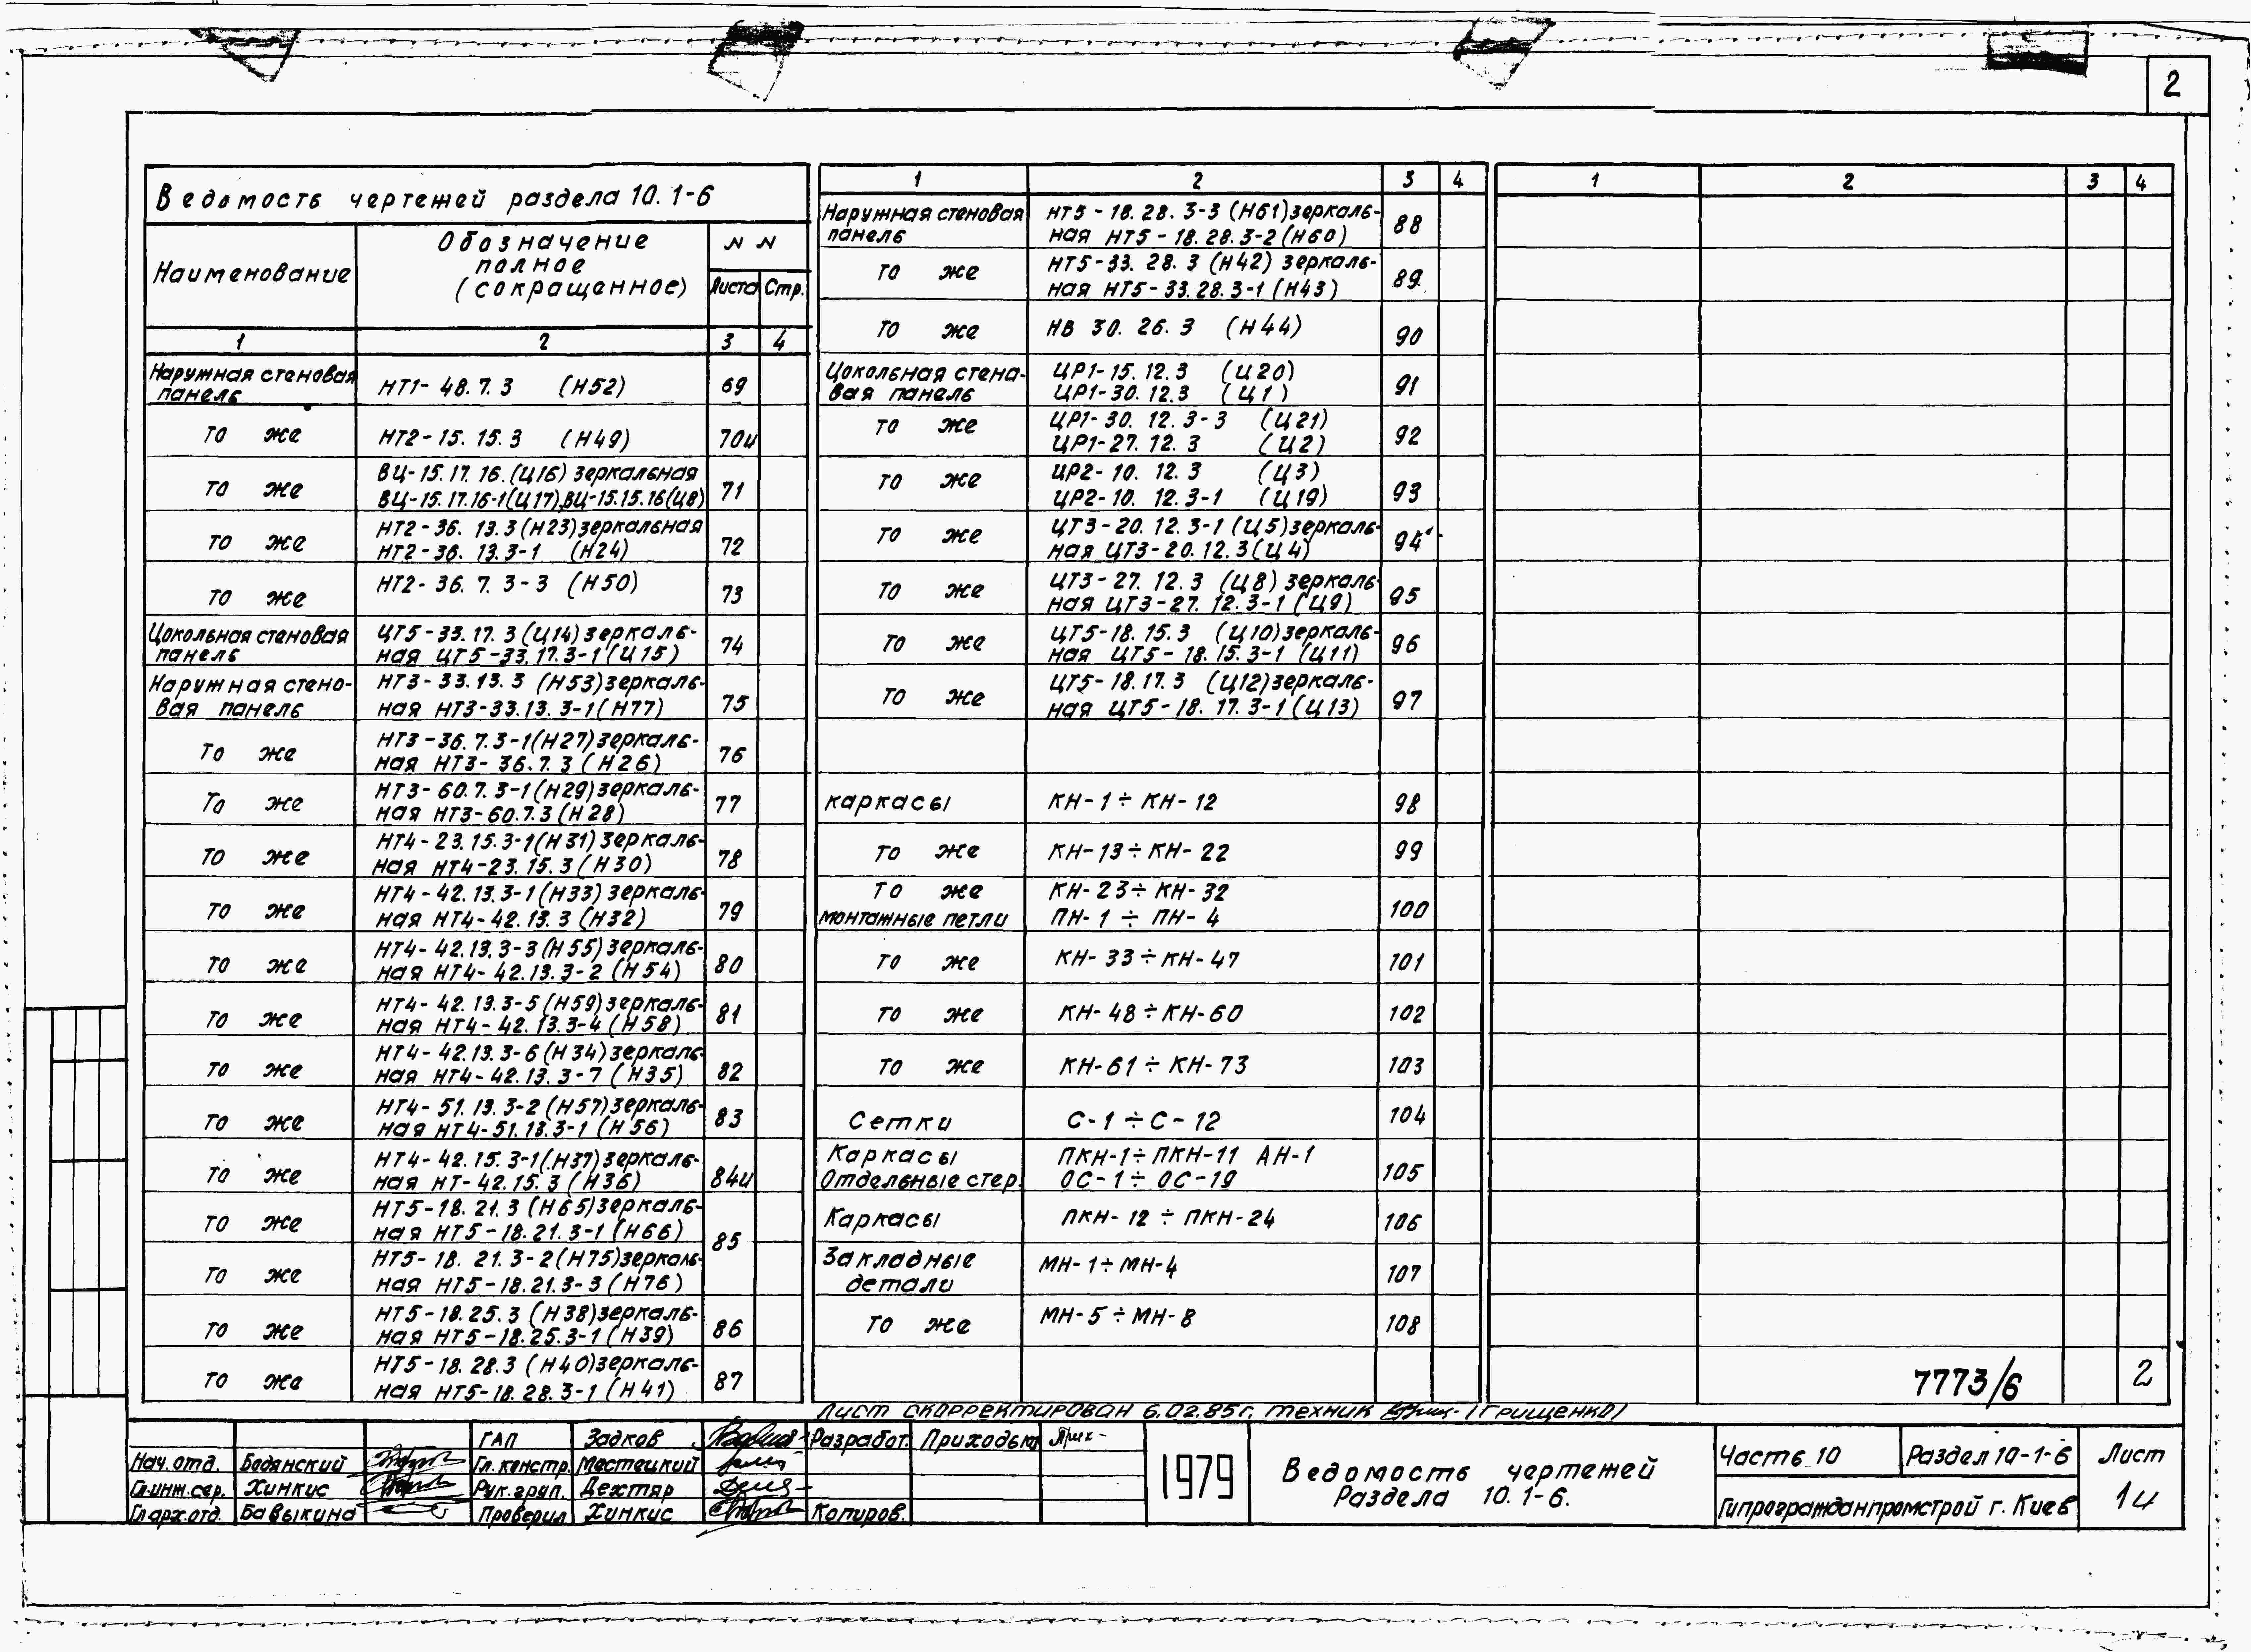 2
Ведомость чертежей раздела 10.1-6
Наименование
Обозначение
полное
(сокращенное)
N N
Листа Стр.
1 2 3 4
Наружная стеновая
панель
НТ1-48.7.3 (Н52) 69
то же НТ2-15.15.3 (Н49) 70и
то же
ВЦ-15.17.16.(Ц16) зеркальная
ВЦ-15.17.16-1(Ц17),ВЦ-15.15.16(Ц8)
71
то же
НТ2-36.13.3(Н23)зеркальная
НТ2-36.13.3-1 (Н24)
72
то же НТ2-36.7.3-3 (Н50) 73
Цокольная стеновая
панель
ЦТ5-33.17.3(Ц14)зеркаль-
ная ЦТ5-33.17.3-1(Ц15)
74
Наружная стено-
вая панель
НТ3-33.13.3 (Н53)зеркаль-
ная НТ3-33.13.3-1(Н77)
75
То же
НТ3-36.7.3-1(Н27)зеркаль-
ная НТ3-36.7.3 (Н26)
76
То же
НТ3-60.7.3-1(Н29)зеркаль-
ная НТ3-60.7.3(Н28)
77
То же
НТ4-23.15.3-1(Н31)зеркаль-
ная НТ4-23.15.3(Н30)
78
то же
НТ4-42.13.3-1(Н33)зеркаль-
ная НТ4-42.13.3(Н32)
79
то же
НТ4-42.13.3-3(Н55)зеркаль-
ная НТ4-42.13.3-2(Н54)
80
то же
НТ4-42.13.3-5(Н59)зеркаль-
ная НТ4-42.13.3-4(Н58)
81
то же
НТ4-42.13.3-6(Н34)зеркаль-
ная НТ4-42.13.3-7(Н35)
82
то же
НТ4-51.13.3-2(Н57)зеркаль-
ная НТ4-51.13.3-1(Н56)
83
то же
НТ4-42.15.3-1(Н37)зеркаль-
ная НТ-42.15.3(Н36)
84и
то же
НТ5-18.21.3(Н65)зеркаль-
ная НТ5-18.21.3-1(Н66)
85
то же
НТ5-18.21.3-2(Н75)зеркаль-
ная НТ5-18.21.3-3(Н76)
то же
НТ5-18.25.3(Н38)зеркаль-
ная НТ5-18.25.3-1(Н39)
86
то же
НТ5-18.28.3(Н40)зеркаль-
ная НТ5-18.28.3-1(Н41)
87
1 2 3 4
Наружная стеновая
панель
НТ5-18.28.3-3(Н61)зеркаль-
ная НТ5-18.28.3-2(Н60)
88
то же
НТ5-33.28.3(Н42) зеркаль-
ная НТ5-33.28.3-1(Н43)
89
то же НВ 30.26.3 (Н44) 90
Цокольная стена-
вая панель
ЦР1-15.12.3 (Ц20)
ЦР1-30.12.3 (Ц1)
91
то же
ЦР1-30.12.3-3 (Ц21)
ЦР1-27.12.3 (Ц2)
92
то же
ЦР2-10.12.3 (Ц3)
ЦР2-10.12.3-1 (Ц19)
93
то же
ЦТ3-20.12.3-1(Ц5)зеркаль-
ная ЦТ3-20.12.3(Ц4)
94
то же
ЦТ3-27.12.3 (Ц8) зеркаль-
ная ЦТ3-27.12.3-1(Ц9)
95
то же
ЦТ5-18.15.3 (Ц10)зеркаль-
ная ЦТ5-18.15.3-1(Ц11)
96
то же
ЦТ5-18.17.3 (Ц12)зеркаль-
ная ЦТ5-18.17.3-1(Ц13)
97
каркасы КН-1÷КН-12 98
то же КН-13÷КН-22 99
То же КН-23÷КН-32
монтажные петли ПН-1÷ПН-4
100
то же КН-33÷КН-47 101
то же КН-48÷КН-60 102
то же КН-61÷КН-73 103
Сетки С-1÷С-12 104
Каркасы ПКН-1÷ПКН-11 АН-1
Отдельные стер. ОС-1÷ОС-19
105
Каркасы ПКН-12÷ПКН-24 106
Закладные
детали
МН-1÷МН-4 107
то же МН-5÷МН-8 108
1 2 3 4
7773/6 2
Лист скорректирован 6.02.85г. техник (Грищенко)
ГАП Задков Разработ. Приходько
Нач.отд. Бодянский Гл.констр. Местецкий
Гл.инж.сер. Хинкис Рук.груп. Дехтяр
Гл.арх.отд. Бавыкина Проверил Хинкис Копиров.
1979
Ведомость чертежей
Раздела 10.1-6.
Часть 10 Раздел 10-1-6 Лист
Гипрогражданпромстрой г. Киев 1и